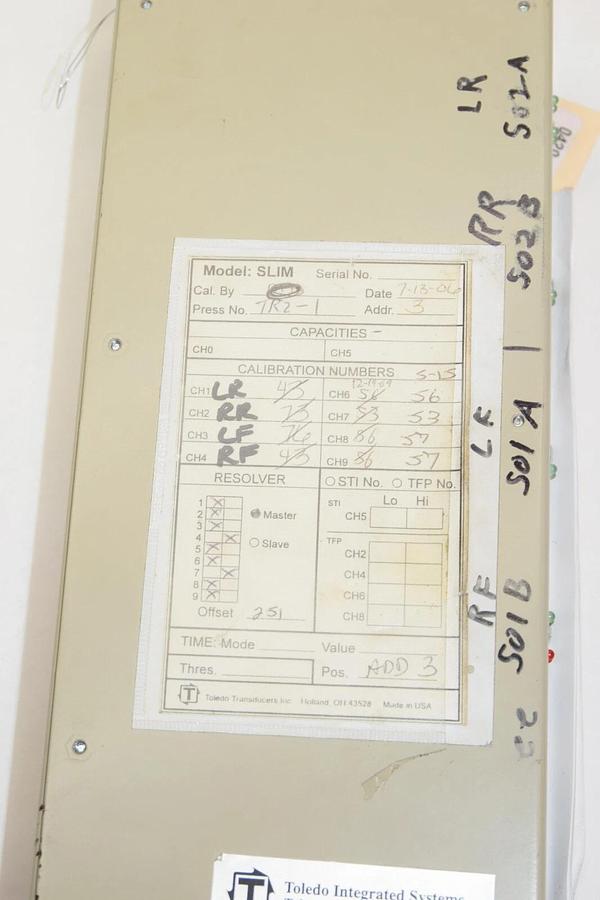 LR S02A
RR S02B
LR S01A
RF S01B
0420
Model: SLIM Serial No.
Cal. By Date 7-13-06
Press No. TR2-1 Addr. 3
CAPACITIES -
CH0 CH5
CALIBRATION NUMBERS 5-15
12-19-09
CH1 LR 43 CH6 56 56
CH2 RR 73 CH7 53 53
CH3 LF 76 CH8 86 57
CH4 RF 43 CH9 86 57
RESOLVER STI No. TFP No.
STI Lo Hi
1
2
3
4
5
6
7
8
9
Master
Slave
CH5
TFP
CH2
CH4
CH6
CH8
Offset 251
TIME: Mode Value
Thres. Pos. ADD 3
T Toledo Transducers Inc. Holland, OH 43528 Made in USA
T Toledo Integrated Systems